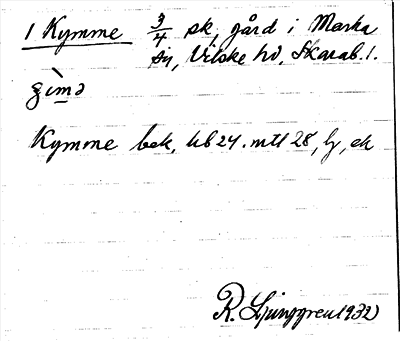 1 Kymme 3/4 sk, gård i Marka
sn, Vilske hd, Skarab. l.
ʒìmə
Kymme bek, kb 24. mtl 28, ly, ek
R. Ljunggren 1932